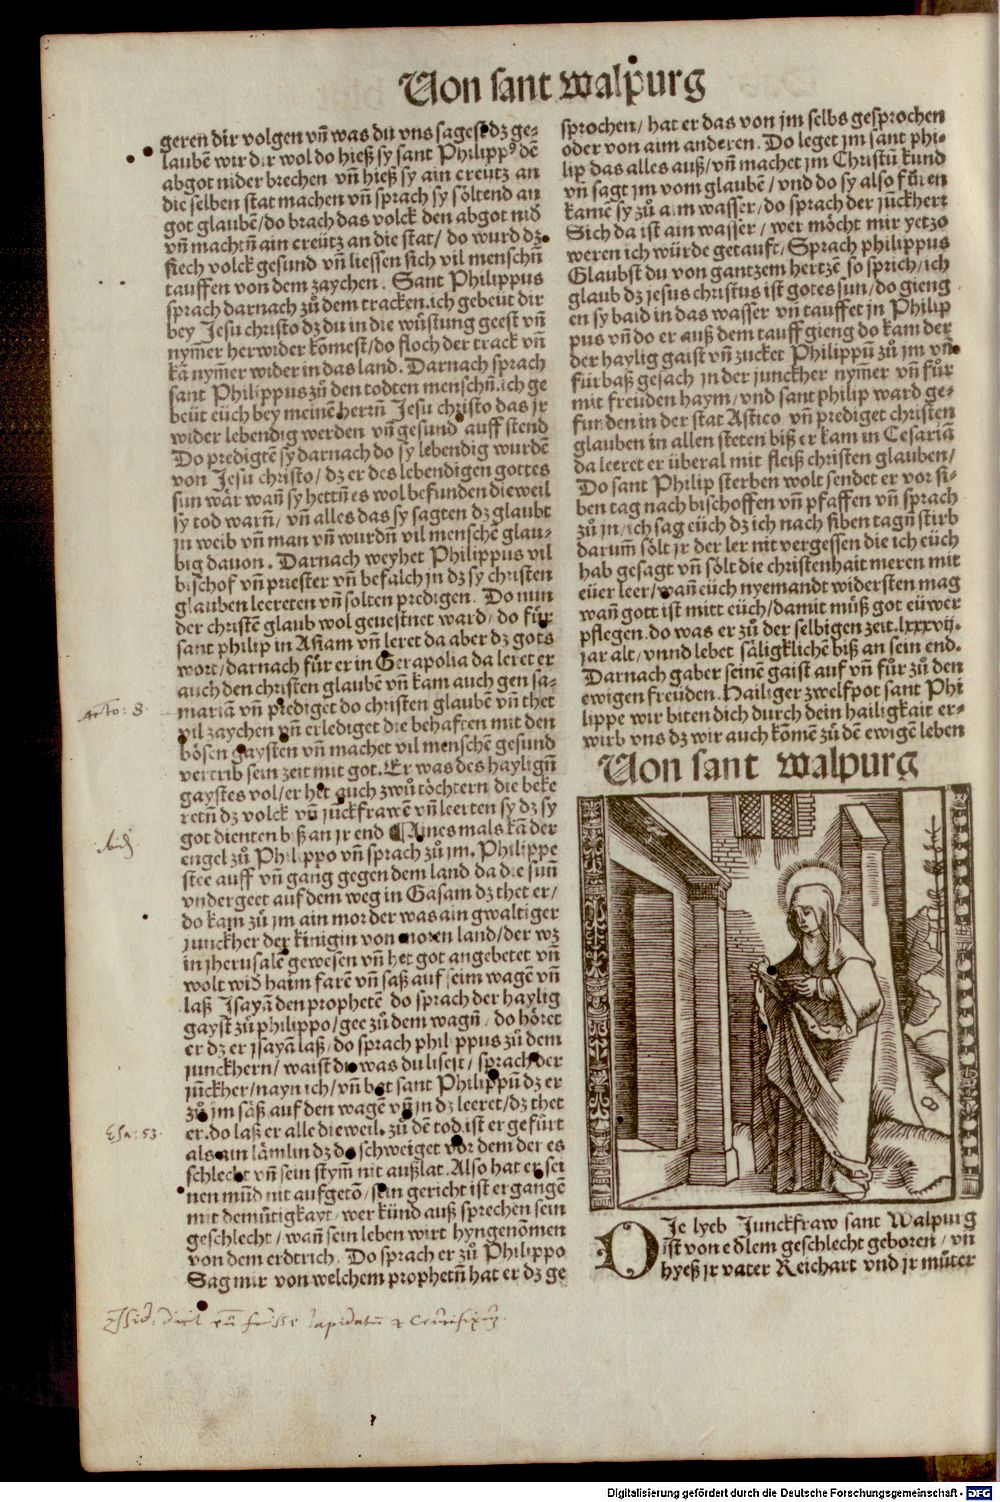 Von sant walpurg
geren dir volgen vñ was du vns sagest dz ge-
laubẽ wir dir wol do hieß sy sant Philippꝰ dẽ
abgot nider brechen vñ hieß sy ain creütz an
die selben stat machen vñ sprach sy söltend an
got glaubẽ/do brach das volck den abgot nid
vñ machtñ ain creütz an die stat/ do wurd dz
siech volck gesund vñ liessen sich vil menschñ
tauffen von dem zaychen. Sant Philippus
sprach darnach zů dem tracken.ich gebeüt dir
bey Jesu christo dz du in die wůstung geest vñ
nym̃er herwider kõmest/do floch der track vñ
kã nym̃er wider in das land. Darnach sprach
sant Philippus zů den todten menschñ.ich ge
beüt eüch bey meinẽ herrñ Jesu christo das jr
wider lebendig werden vñ gesund auff stend
Do predigtẽ sy darnach do sy lebendig wurdẽ
von Jesu christo/dz er des lebendigen gottes
sun wär wañ sy hettñ es wol befunden dieweil
sy tod warñ/ vñ alles das sy sagten dz glaubt
jn weib vñ man vñ wurdñ vil menschẽ glau-
big dauon. Darnach weyhet Philippus vil
bischof vñ priester vñ befalch jn dz sy christen
glauben leereten vñ solten predigen. Do nun
der christẽ glaub wol geuestnet ward/do fůr
sant philip in Asiam vñ leret da aber dz gots
wort/darnach für er in Gerapolia da leret er
auch den christen glaubẽ vñ kam auch gen sa-
mariã vñ prediget do christen glaubẽ vñ thet
vil zaychen vñ erlediget die behaften mit den
bösen gaysten vñ machet vil menschẽ gesund
vertrib sein zeit mit got. Er was des hayligñ
gaystes vol/er het auch zwů töchtern die beke
retñ dz volck vñ jũckfrawẽ vñ leerten sy dz sy
got dienten biß an jr end ¶Aines mals kã der
engel zů Philippo vñ sprach zů jm. Philippe
stee auff vñ gang gegen dem land da die suñ
vndergeet auf dem weg in Gasam dz thet er/
do kam zů jm ain mor der was ain gwaltiger
junckher der kinigin von moren land/der wz
in jherusalẽ gewesen vñ het got angebetet vñ
wolt wid haim farẽ vñ saß auf seim wagẽ vñ
laß Isayã den prophetẽ do sprach der haylig
gayst zů philippo/gee zů dem wagñ/ do höret
er dz er jsayã laß/do sprach philippus zů dem
junckhern/ waist du was du lisest/ sprach der
jũckher/nayn ich/vñ bat sant Philippũ dz er
zů jm säß auf den wagẽ vñ jn dz leeret/dz thet
er.do laß er alle dieweil. zů dẽ tod ist er gefürt
als ain lämlin dz do schweiget vor dem der es
schlecht vñ sein stym̃ nit außlat. Also hat er sei
nen mũd nit aufgetõ/sein gericht ist ergangẽ
mit demütigkayt/wer künd auß sprechen sein
geschlecht/ wañ sein leben wirt hyngenõmen
von dem erdtrich. Do sprach er zů Philippo
Sag mir von welchem prophetñ hat er dz ge
Acto: 8.
ibid.
Esa: 53.
sprochen/ hat er das von jm selbs gesprochen
oder von aim anderen. Do leget jm sant phi-
lip das alles auß/vñ machet jm Christũ kund
vñ sagt jm vom glaubẽ/ vnd do sy also fůren
kamẽ sy zů aim wasser/do sprach der jũckherr
Sich da ist ain wasser/ wer möcht mir yetzo
weren ich würde getauft/Sprach philippus
Glaubst du von gantzem hertzẽ so sprich/ich
glaub dz jesus christus ist gotes sun/do gieng
en sy baid in das wasser vñ tauffet jn Philip
pus vñ do er auß dem tauff gieng do kam der
der haylig gaist vñ zucket Philippũ zů jm vñ
fürbaß gesach jn der junckher nym̃er vñ fůr
mit freuden haym/vnd sant philip ward ge-
funden in der stat Astico vñ prediget christen
glauben in allen steten biß er kam in Cesariã
da leeret er überal mit fleiß christen glauben/
Do sant Philip sterben wolt sendet er vor si-
ben tag nach bischoffen vñ pfaffen vñ sprach
zů jn/ich sag eüch dz ich nach siben tagñ stirb
darum̃ sölt jr der ler nit vergessen die ich eüch
hab gesagt vñ sölt die christenhait meren mit
eüer leer/wañ eüch nyemandt widersten mag
wañ gott ist mitt eüch/damit můß got eüwer
pflegen.do was er zů der selbigen zeit.lxxxvij.
jar alt/vnnd lebet säligklichẽ biß an sein end.
Darnach gaber seinẽ gaist auf vñ fůr zů den
ewigen freuden. Hailiger zwelfpot sant Phi
lippe wir biten dich durch dein hailigkait er-
wirb vns dz wir auch kõmẽ zů dẽ ewigẽ leben
Von sant walpurg
DJe lyeb Junckfraw sant Walpurg
ist von edlem geschlecht geboren/ vñ
hyeß jr vater Reichart vnd jr můter
lapidatũ
Digitalisierung gefördert durch die Deutsche Forschungsgemeinschaft - DFG